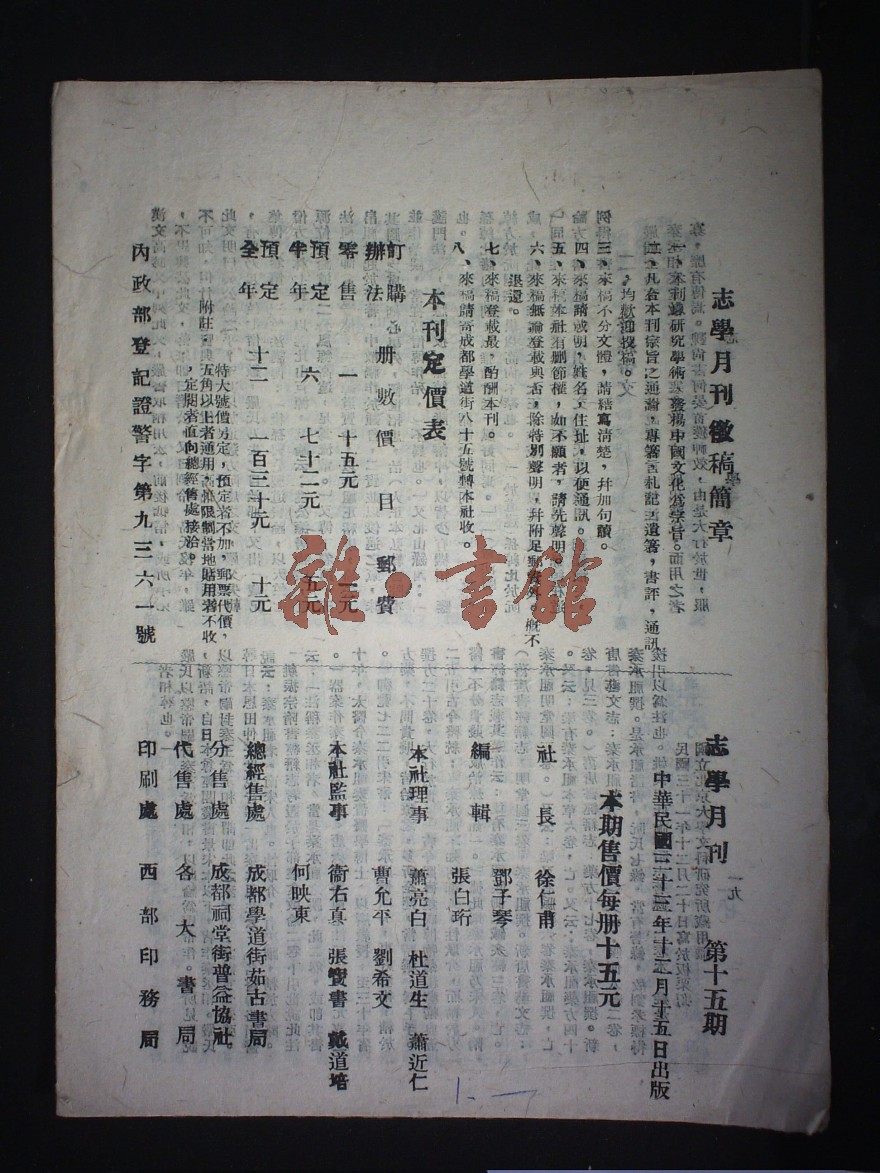 志學月刊徵稿簡章
一、本刊以研究學術，發揚中國文化為宗旨。
二、凡合本刊宗旨之通論，專著，札記，遺箸，書評，通訊
，均歡迎投稿。
三、來稿不分文體，請結寫清楚，幷加句讀。
四、來稿請載明，姓名，住址，以便通訊。
五、來稿本社有删節權，如不願者，請先聲明。
六、來稿無論登載與否，除特別聲明，幷附足郵資外。概不
退還。
七、來稿登載後，酌酬本刊。
八、來稿請寄成都學道街八十五號轉本社收。
本刊定價表
訂購辦法 册數 價目 郵費
零售 一 十五元 一元
預定半年 六 七十二元 五元
預定全年 十二 一百三十元 十元
附註：特大號價另定，預定者不加，郵票代價，
五角以上者通用，惟限制當地貼用者不收
，定閱者直向總經售處接洽。
內政部登記證警字第九三六一號
志學月刊 第十五期
中華民國三十三年十二月十五日出版
本期售價每册十五元
社長 徐仁甫
編輯 鄧子琴
張白珩
本社理事 蕭亮白 杜道生 蕭近仁
曹允平 劉希文
本社監事 衞右真 張寶書 戴道培
何映東
總經售處 成都學道街茹古書局
分售處 成都祠堂街普益協社
代售處 各大書局
印刷處 西部印務局
雜·書館